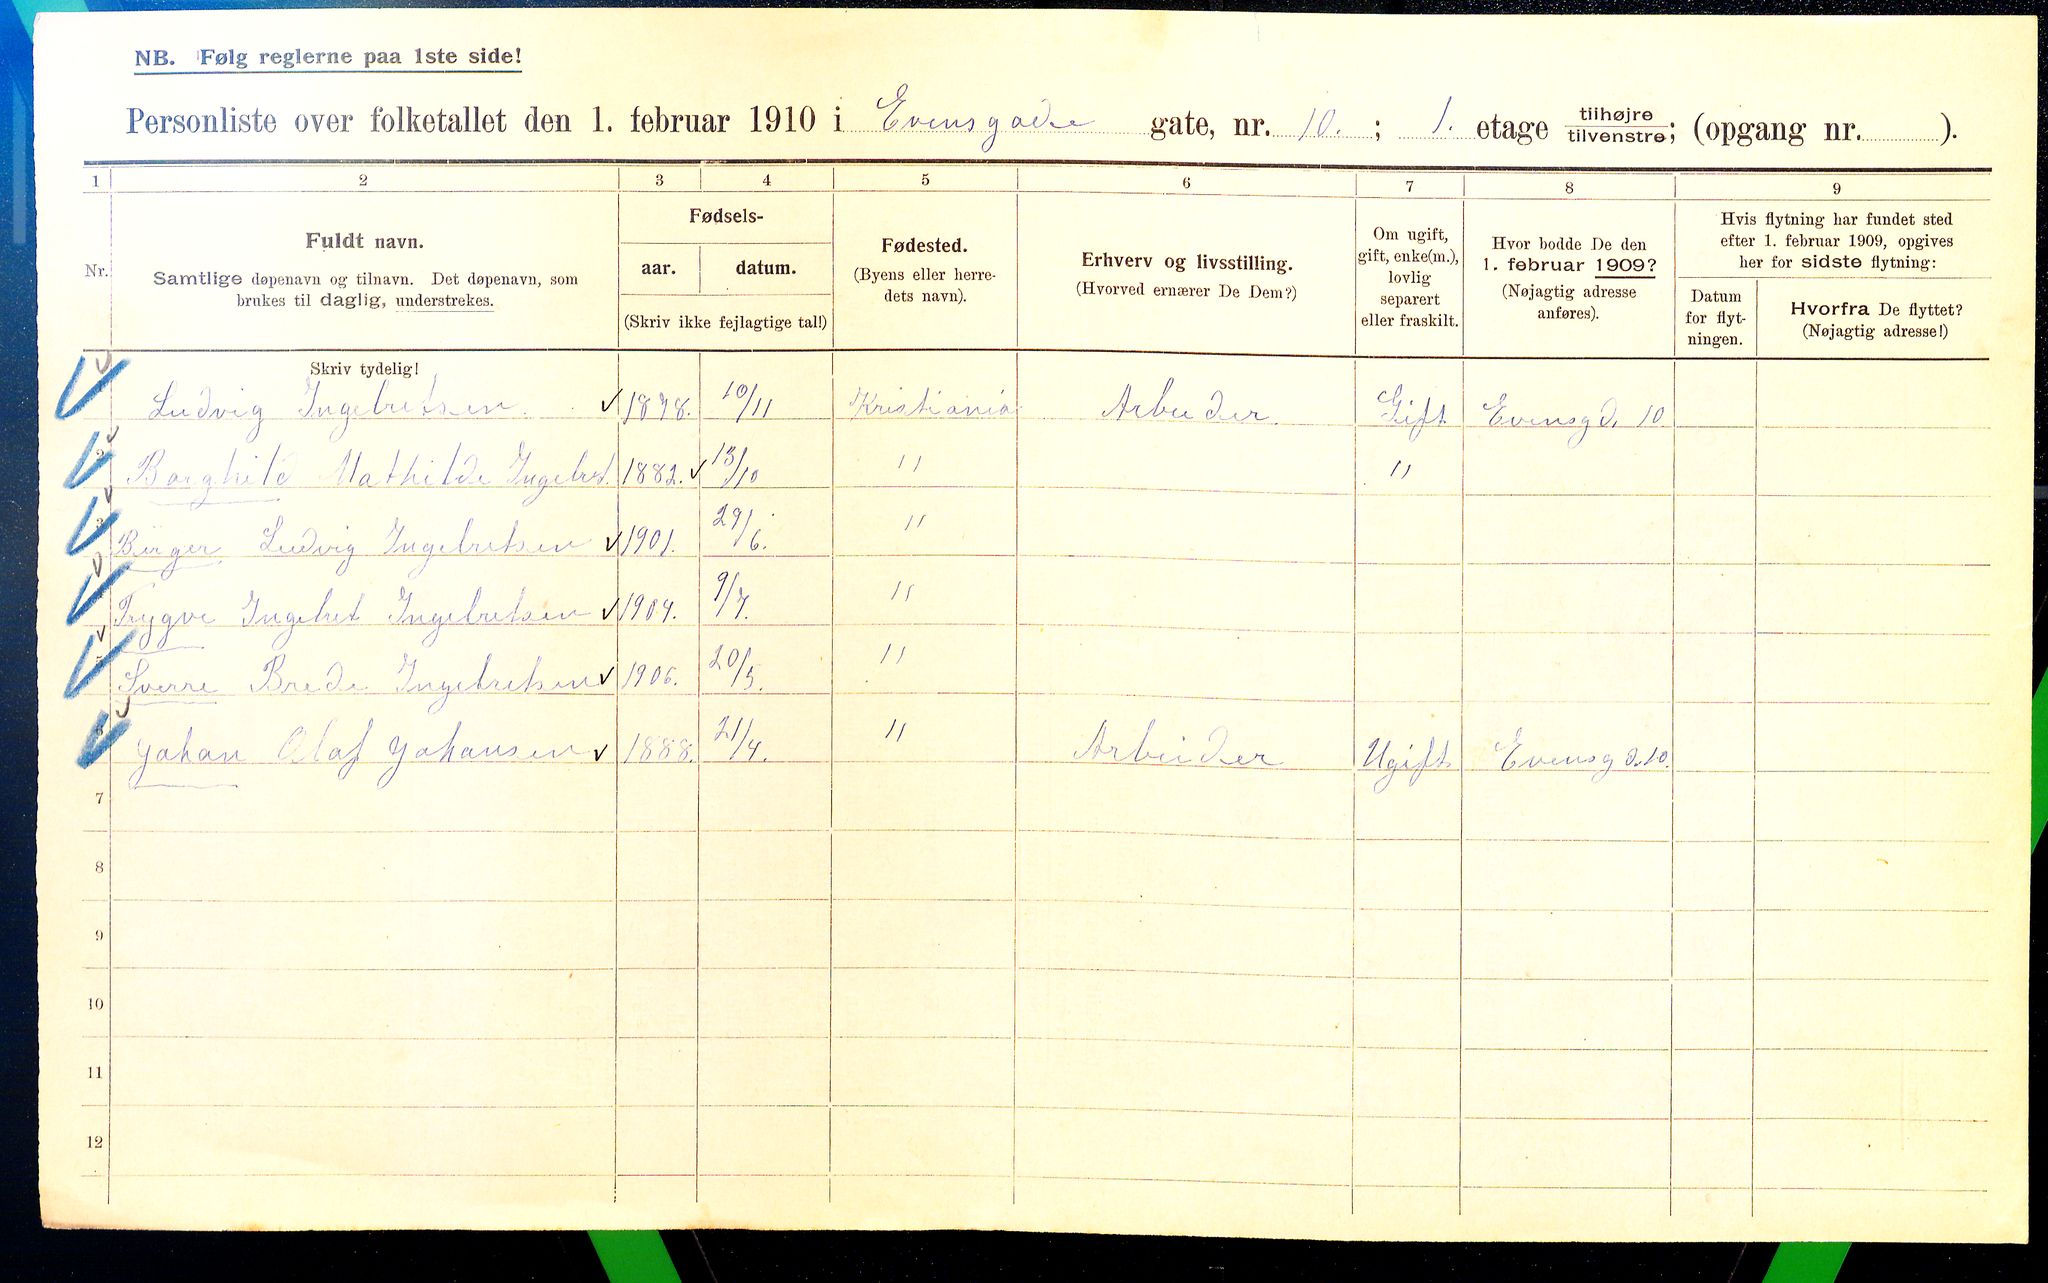 NB. Følg reglerne paa 1ste side!
Personliste over folketallet den 1. februar 1910 i Evensgade gate, nr. 10. ; 1. etage tilhøjre tilvenstre; (opgang nr. ).
1 2 3 4 5 6 7 8 9
Nr.
Fuldt navn.
Samtlige døpenavn og tilnavn. Det døpenavn, som
brukes til daglig, understrekes.
Fødsels-
aar. datum.
(Skriv ikke fejlagtige tal!)
Fødested.
(Byens eller herre-
dets navn).
Erhverv og livsstilling.
(Hvorved ernærer De Dem?)
Om ugift,
gift, enke(m.),
lovlig
separert
eller fraskilt.
Hvor bodde De den
1. februar 1909?
(Nøjagtig adresse
anføres).
Hvis flytning har fundet sted
efter 1. februar 1909, opgives
her for sidste flytning:
Datum
for flyt-
ningen.
Hvorfra De flyttet?
(Nøjagtig adresse!)
Skriv tydelig!
Ludvig Ingebretsen. 1878. 10/11 Kristiania Arbeider Gift Evensgd. 10.
2 Borghild Mathilde Ingebret. 1882. 13/10 " "
3 Birger Ludvig Ingebretsen 1901. 29/6. "
Trygve Ingebret Ingebretsen 1904. 9/7. "
5 Sverre Brede Ingebretsen 1906. 20/5. "
6 Johan Olaf Johansen 1888. 21/4. " Arbeider Ugift Evensgd. 10.
7
8
9
10
11
12